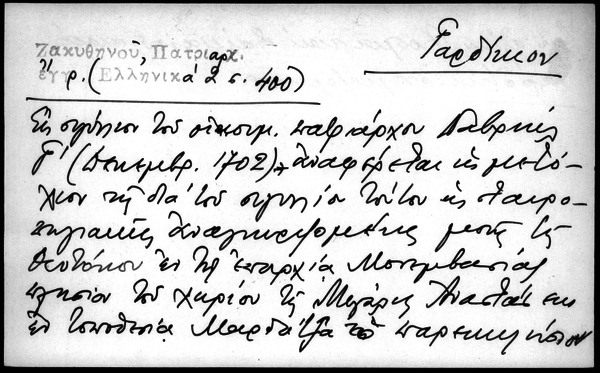 Γαρδίκιον
Ζακυθηνοῦ, Πατριαρχ.
ἔγγρ. (Ἑλληνικά 2 σ. 400)
Εἰς σιγίλλιον τοῦ οἰκουμ. πατριάρχου Γαβριήλ
Γ' (Δεκεμβρ. 1702) ἀναφέρεται ὡς μετό-
χιον τῆς διὰ τοῦ σιγιλλίου τούτου ὡς σταυρο-
πηγιακῆς ἀναγνωριζομένης μονῆς τῆς
Θεοτόκου ἐν τῇ ἐπαρχίᾳ Μονεμβασίας
πλησίον τοῦ χωρίου τῆς Μεγάλης Ἀναστάσεως
ἐν τοποθεσίᾳ Μαρδάτζα τὸ παρεκκλήσιον